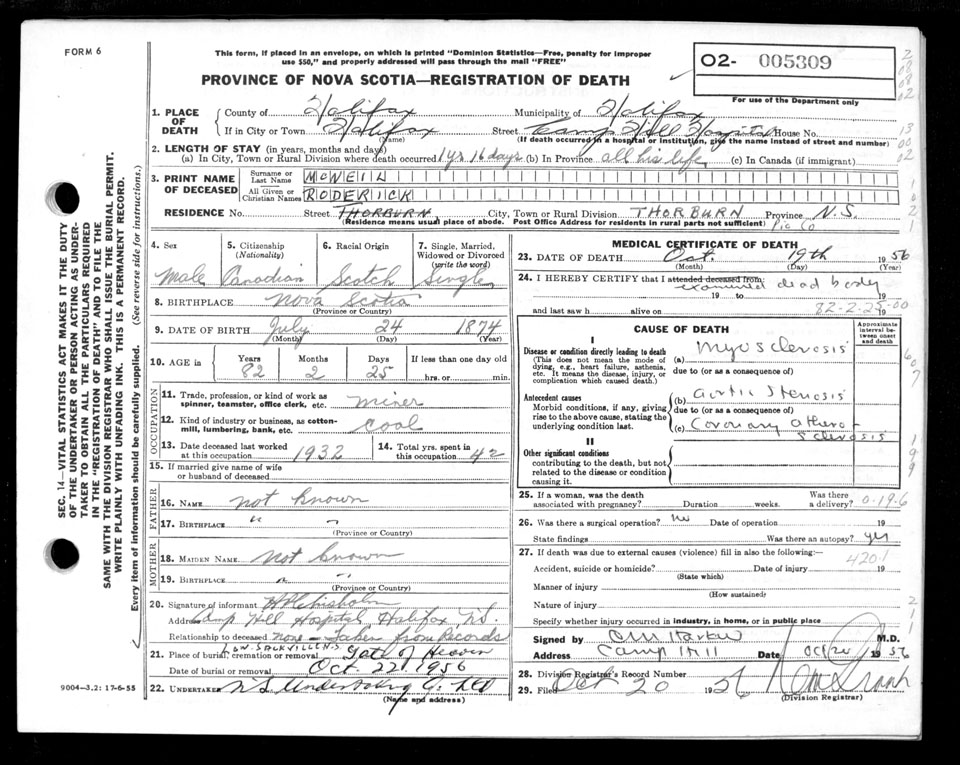 FORM 6
This form, if placed in an envelope, on which is printed "Dominion Statistics—Free, penalty for improper
use $50," and properly addressed will pass through the mail "FREE"
PROVINCE OF NOVA SCOTIA—REGISTRATION OF DEATH
02- 005309
For use of the Department only
1. PLACE OF DEATH
County of Halifax Municipality of Halifax
If in City or Town Halifax Street Camp Hill Hospital House No.
(Name) (If death occurred in a hospital or institution, give the name instead of street and number)
2. LENGTH OF STAY (in years, months and days)
(a) In City, Town or Rural Division where death occurred 1 yr 16 days (b) In Province all his life (c) In Canada (if immigrant)
3. PRINT NAME OF DECEASED
Surname or Last Name McNEIL
All Given or Christian Names RODERICK
RESIDENCE No. Street THORBURN City, Town or Rural Division THORBURN Province N.S.
(Residence means usual place of abode. Post Office Address for residents in rural parts not sufficient) Pic Co
4. Sex
Male
5. Citizenship (Nationality)
Canadian
6. Racial Origin
Scotch
7. Single, Married, Widowed or Divorced (write the word)
Single
8. BIRTHPLACE Nova Scotia
(Province or Country)
9. DATE OF BIRTH July 24 1874
(Month) (Day) (Year)
10. AGE in Years Months Days If less than one day old
82 2 25 hrs. or min.
OCCUPATION
11. Trade, profession, or kind of work as spinner, teamster, office clerk, etc. miner
12. Kind of industry or business, as cotton-mill, lumbering, bank, etc. coal
13. Date deceased last worked at this occupation 1932
14. Total yrs. spent in this occupation 42
15. If married give name of wife or husband of deceased
FATHER
16. NAME not known
17. BIRTHPLACE " "
(Province or Country)
MOTHER
18. MAIDEN NAME not known
19. BIRTHPLACE " "
(Province or Country)
20. Signature of informant Chisholm
Address Camp Hill Hospital, Halifax N.S.
Relationship to deceased none — Taken from Records
21. Place of burial, cremation or removal LOW. SACKVILLE N.S. Gate of Heaven
Date of burial or removal Oct. 22 1956
22. UNDERTAKER N S Undertaking Co. Ltd
(Name and address)
MEDICAL CERTIFICATE OF DEATH
23. DATE OF DEATH Oct. 19th 1956
(Month) (Day) (Year)
24. I HEREBY CERTIFY that I attended deceased from: examined dead body
19 to 19
and last saw h alive on 19
82-2-25-00
CAUSE OF DEATH
Approximate interval between onset and death
I
Disease or condition directly leading to death (a) Myosclerosis
(This does not mean the mode of dying, e.g., heart failure, asthenia, etc. It means the disease, injury, or complication which caused death.)
due to (or as a consequence of)
Antecedent causes (b) aortic stenosis
Morbid conditions, if any, giving rise to the above cause, stating the underlying condition last.
due to (or as a consequence of)
(c) Coronary atherosclerosis
II
Other significant conditions
contributing to the death, but not related to the disease or condition causing it.
25. If a woman, was the death associated with pregnancy? Duration weeks. Was there a delivery? 0-19-6
26. Was there a surgical operation? no Date of operation 19
State findings Was there an autopsy? yes
27. If death was due to external causes (violence) fill in also the following:—
420.1
Accident, suicide or homicide? Date of injury 19
(State which)
Manner of injury
(How sustained)
Nature of injury
Specify whether injury occurred in industry, in home, or in public place
Signed by M.D.
Address Camp Hill Date Oct 20 1956
28. Division Registrar's Record Number
29. Filed Oct 20 1956
(Division Registrar)
SEC. 14—VITAL STATISTICS ACT MAKES IT THE DUTY
OF THE UNDERTAKER OR PERSON ACTING AS UNDER-
TAKER TO OBTAIN ALL THE PARTICULARS REQUIRED
IN THE "REGISTRATION OF DEATH" AND TO FILE THE
SAME WITH THE DIVISION REGISTRAR WHO SHALL ISSUE THE BURIAL PERMIT.
WRITE PLAINLY WITH UNFADING INK. THIS IS A PERMANENT RECORD.
Every item of information should be carefully supplied. (See reverse side for instructions.)
9004—3.2: 17-6-55